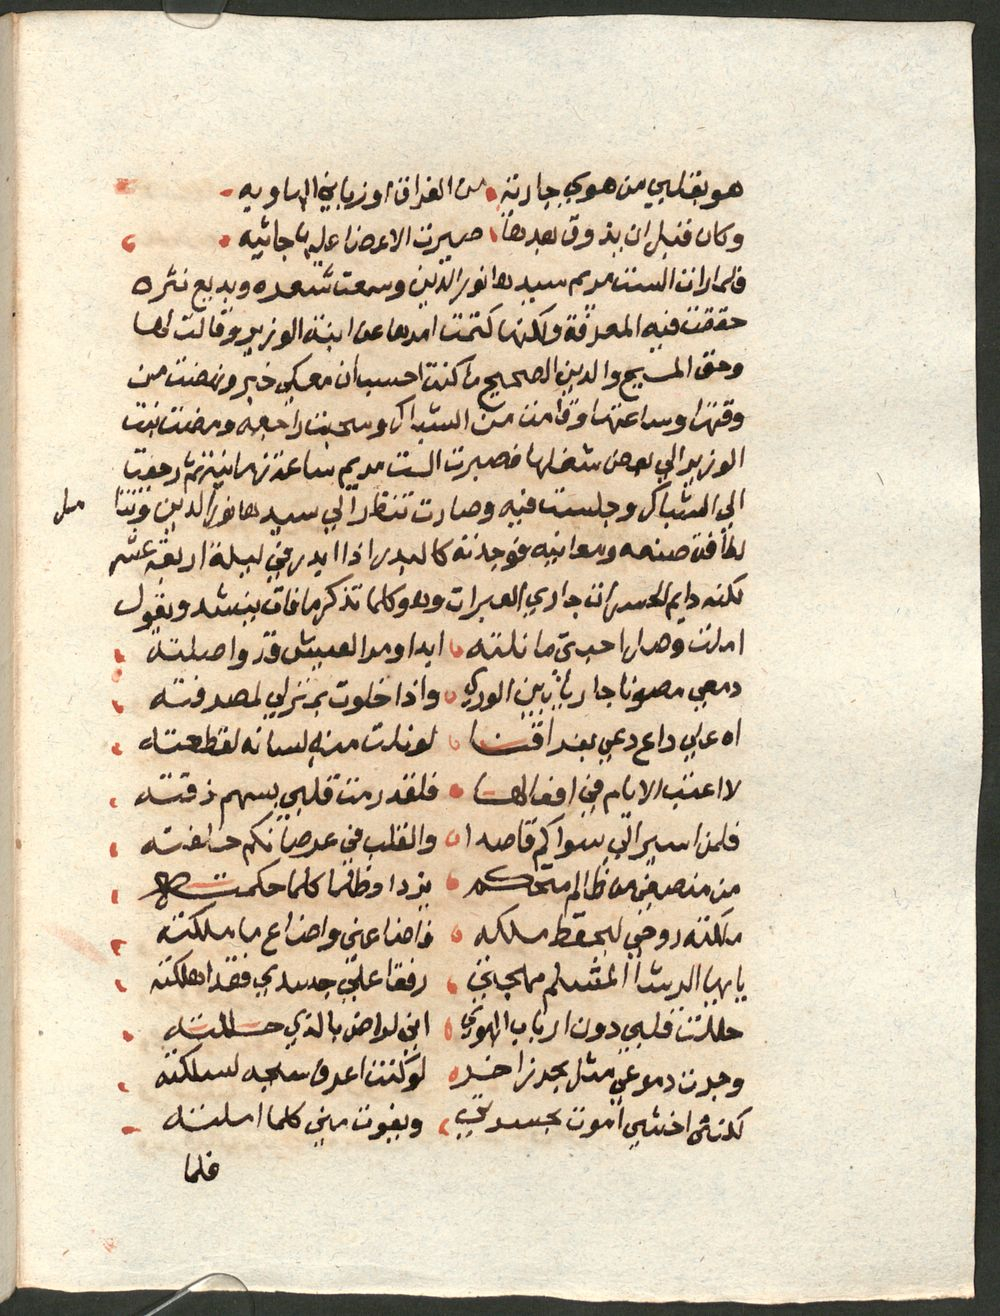 هو بقلبي من هوي جارية من الفراق او زباني الهاويه
وكان قبل ان يذوق بعدها صيرت الاعضا عليه جاثيه
فلما رات الست مريم سيدها نور الدين وسمعت شعره وبديع نثره
حققت فيه المعرفة ولكنها كتمت امرها عن ابنة الوزير وقالت لها
وحق المسيح والدين الصحيح ما كنت احسب ان معكي خبر ونهضت من
وقتها وساعتها وقامت من الشباك وسحبت راجعه ومضت بنت
الوزير الي بعض شغلها فصبرت الست مريم ساعة زمانية ثم رجعت
الي الشباك وجلست فيه وصارت تنظر الي سيدها نور الدين وتتا مل
لطافة صنعه ومعانيه فوجدته كالبدر اذا ابدر في ليلة اربعة عشر
لكنه دايم الحسرات جاري العبرات وهو كلما تذكر ما فات ينشد ويقول
املت وصل احبتي ما نلته ابدا ومر العيش قد واصلته
دمعي مصونا جاريا بين الوري واذا خلوت بمنزلي لصرفته
اه علي داع دعي بفراقنا لو نلت منه لسانه لقطعته
لا اعتب الايام في افعالها فلقد رمت قلبي بسهم ذقته
فلمن اسير الي سواكم قاصدا والقلب في عرصاتكم خلفته
من منصفي من ظالم متحكم يزداد ظلما كلما حكمته
ملكته روحي ليحفظ ملكه فاضاعني واضاع ما ملكته
يايها الرشا المسلم مهجتي رفقا علي جسدي فقد اهلكته
حللت قلبي دون ارباب الهوي اني لراض بالذي حللته
وجرت دموعي مثل بحر زاخر لو كنت اعرف سبحه لسلكته
لكنني اخشي اموت بحسرتي ويفوت مني كلما املته
فلما